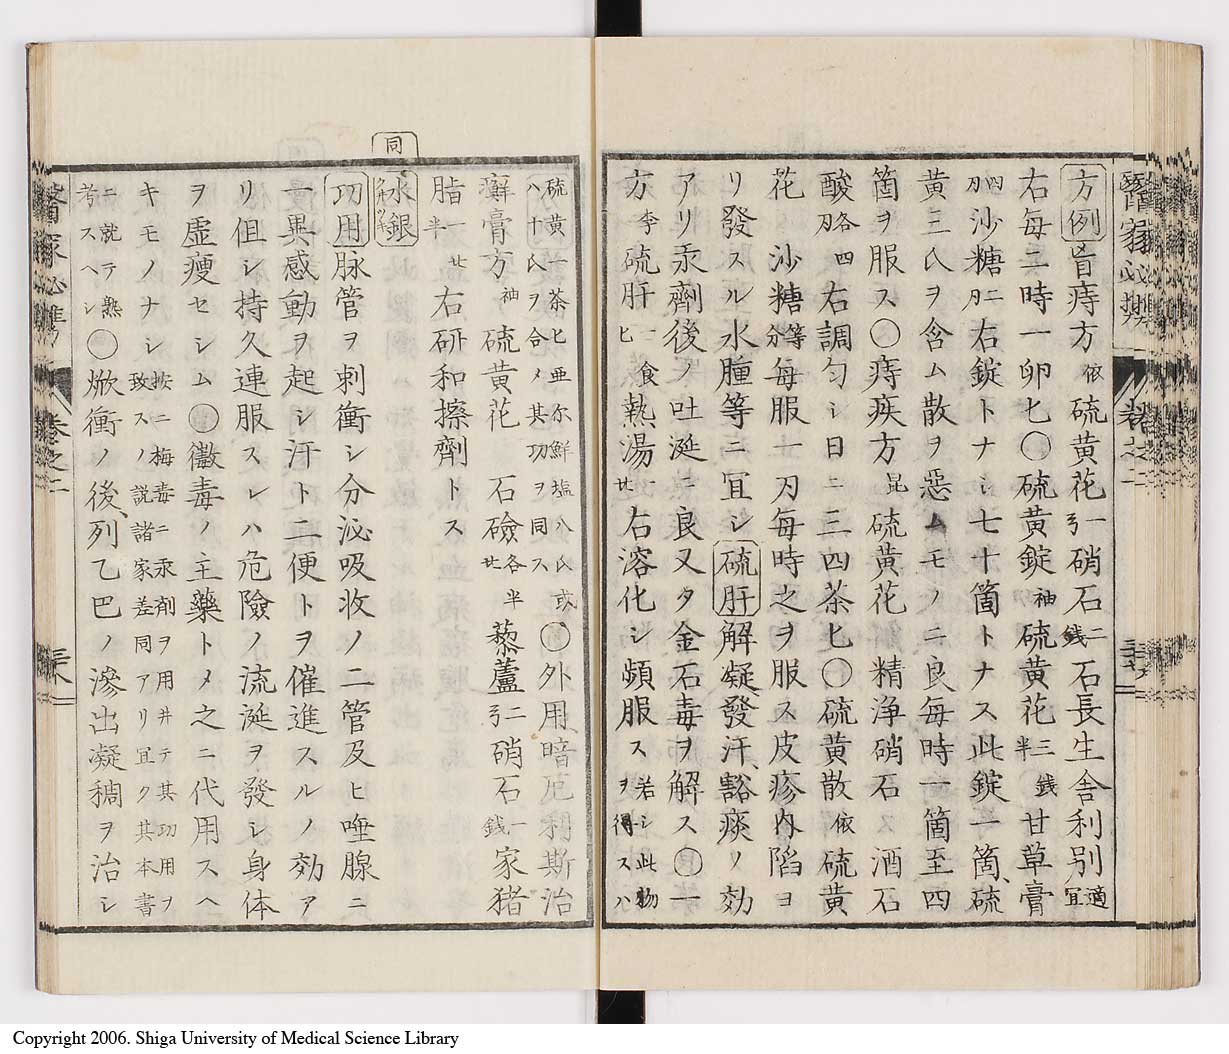 方例 盲痔方 依 硫黄花 一弓 硝石 二銭 石長生舎利別 適宜
右毎二時一卵匕〇硫黄錠 袖 硫黄花 三銭半 甘草膏
四刄 沙糖 二刄 右錠トナシ七十箇トナス此錠一箇硫
黄三氏ヲ含ム散ヲ惡ムモノニ良毎時一箇至四
箇ヲ服ス〇痔疾方 昆 硫黄花 精浄硝石 酒石
酸 各四刄 右調匀シ日ニ三四茶匕〇硫黄散 依 硫黄
花 沙糖 等分 毎服十刄毎時之ヲ服ス皮疹内陷ヨ
リ發スル水腫等ニ宜シ 硫肝 解凝發汗豁痰ノ効
アリ汞劑後ノ吐涎ニ良又タ金石毒ヲ解ス〇一
方 李 硫肝 一匕 食 熱湯 右溶化シ頻服ス 若シ此物ヲ得スハ
醫家必携 卷之二
硫黄一茶匕亜尓鮮塩八氏或ハ十氏ヲ合ノ其功ヲ同ス 〇外用暗厄利斯治
癬膏方 袖 硫黄花 石礆 各半 藜蘆 二弓 硝石 一銭 家猪
脂 一半 右研和擦劑トス
同
水銀
功用 脉管ヲ刺衝シ分泌吸收ノ二管及ヒ唾腺ニ
一異感動ヲ起シ汗ト二便トヲ催進スルノ効ア
リ但シ持久連服スレハ危險ノ流涎ヲ發シ身体
ヲ虚痩セシム〇黴毒ノ主藥トメ之ニ代用スヘ
キモノナシ 按ニ梅毒ニ汞剤ヲ用井テ其功用ヲ致スノ説諸家差同アリ宜ク其本書
ニ就テ熟考スヘシ 〇焮衝ノ後列乙巴ノ滲出凝稠ヲ治シ
醫家必携 卷之二
Copyright 2006. Shiga University of Medical Science Library